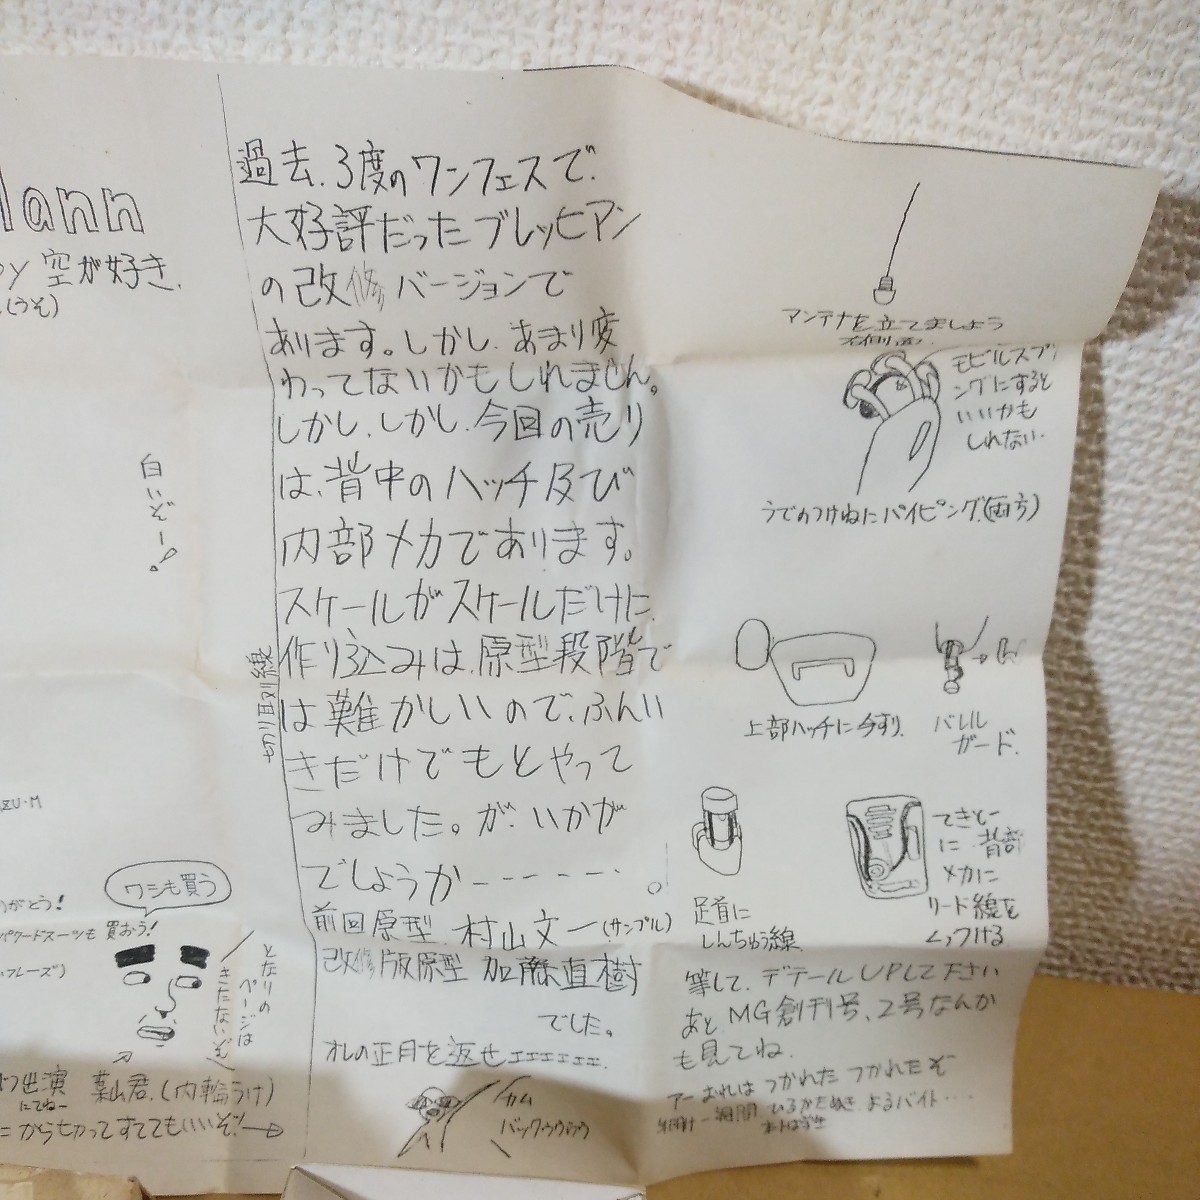 lann
空が好き.
(うそ)
白いぞー。
ZU-M
がとう!
パワードスーツも 買おう!
フレーズ)
ワシも買う
となりの
ページは
きたないぞ
出演
にてねー
葉山君.(内輪うけ)
から切ってすててもいいぞ!→
切り取り線
過去.3度のワンフェスで.
大好評だったブレッヒマン
の改修バージョンで
あります。しかし.あまり変
わってないかもしれません。
しかし.しかし.今回の売り
は、背中のハッチ及び
内部メカであります。
スケールがスケールだけに.
作り込みは.原型段階で
は難かしいので.ふんい
きだけでもとやって
みました。が.いかが
でしょうか------。
前回原型. 村山文一(サンプル)
改修版原型 加藤直樹
でした。
オレの正月を返せエエエエエエ.
カム
バックゥゥゥゥ
アンテナを立てましょう
右側面.
モビルスプリ
ングにすると
いいかも
しれない.
うでのつけねにパイピング.(両方)
上部ハッチに手すり.
バレル
ガード.
足首に
しんちゅう線.
てきとー
に 背部
メカに
リード線を
くっつける
等して.デテールUPして下さい
あと MG創刊号、2号なんか
も見てね.
アーおれは つかれた つかれたぞ
ひるかたぬき よるバイト・・・